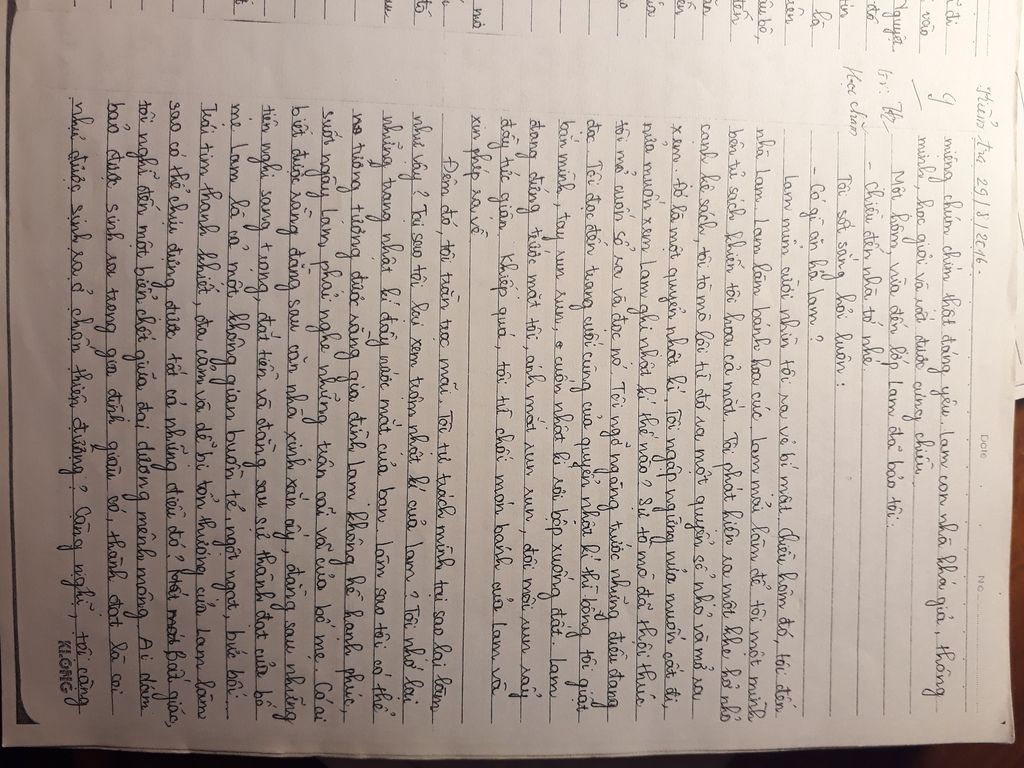 Kiểm tra 29/8/2016
DATE
NO
miệng chúm chím thật đáng yêu. Lam con nhà khá giả, thông
minh, học giỏi và rất được cưng chiều.
Một hôm, vừa đến lớp Lam đã bảo tôi:
- Chiều đến nhà tớ nhé.
Tôi sốt sắng hỏi luôn:
- Có gì ăn hả Lam?
Lam mỉm cười nhìn tôi ra vẻ bí mật. Chiều hôm đó, tôi đến
nhà Lam. Lam làm bánh hoa cúc. Lam mải làm để tôi một mình
bên tủ sách khiến tôi hoa cả mắt. Tôi phát hiện ra một khe hở nhỏ
cạnh kệ sách, tôi tò mò lôi từ đó ra một quyển sổ nhỏ và mở ra
xem. Đó là một quyển nhật kí. Tôi ngập ngừng nửa muốn cất đi,
nửa muốn xem, Lam ghi nhật kí thế nào? Sự tò mò đã thôi thúc
tôi mở cuốn sổ ra và đọc nó. Tôi ngỡ ngàng trước những điều đang
đọc. Tôi đọc đến trang cuối cùng của quyển nhật kí thì bỗng tôi giật
bắn mình, tay run run, cuốn nhật kí rơi bộp xuống đất. Lam
đang đứng trước mặt tôi, ánh mắt run run, đôi môi run rẩy
đầy tức giận. Khiếp quá, tôi từ chối món bánh của Lam và
xin phép ra về.
Đêm đó, tôi trằn trọc mãi. Tôi tự trách mình tại sao lại làm
như vậy? Tại sao tôi lại xem trộm nhật kí của Lam? Tôi nhớ lại
những trang nhật kí đầy nước mắt của bạn. Làm sao tôi có thể
tưởng tượng được rằng gia đình Lam không hề hạnh phúc,
suốt ngày Lam phải nghe những trận cãi vã của bố mẹ. Có ai
biết được rằng đằng sau căn nhà xinh xắn ấy, đằng sau những
tiện nghi sang trọng, đắt tiền và đằng sau sự thành đạt của bố
mẹ Lam là cả một không gian buồn tẻ, ngột ngạt, bức bối...
Trái tim thánh khiết, đa cảm và dễ bị tổn thương của Lam làm
sao có thể chịu đựng được tất cả những điều đó? bất giác,
tôi nghĩ đến một biển chết giữa đại dương mênh mông. Ai dám
bảo được sinh ra trong gia đình giàu có, thành đạt là coi
như được sinh ra ở chốn thiên đường? Càng nghĩ, tôi càng
KLONG